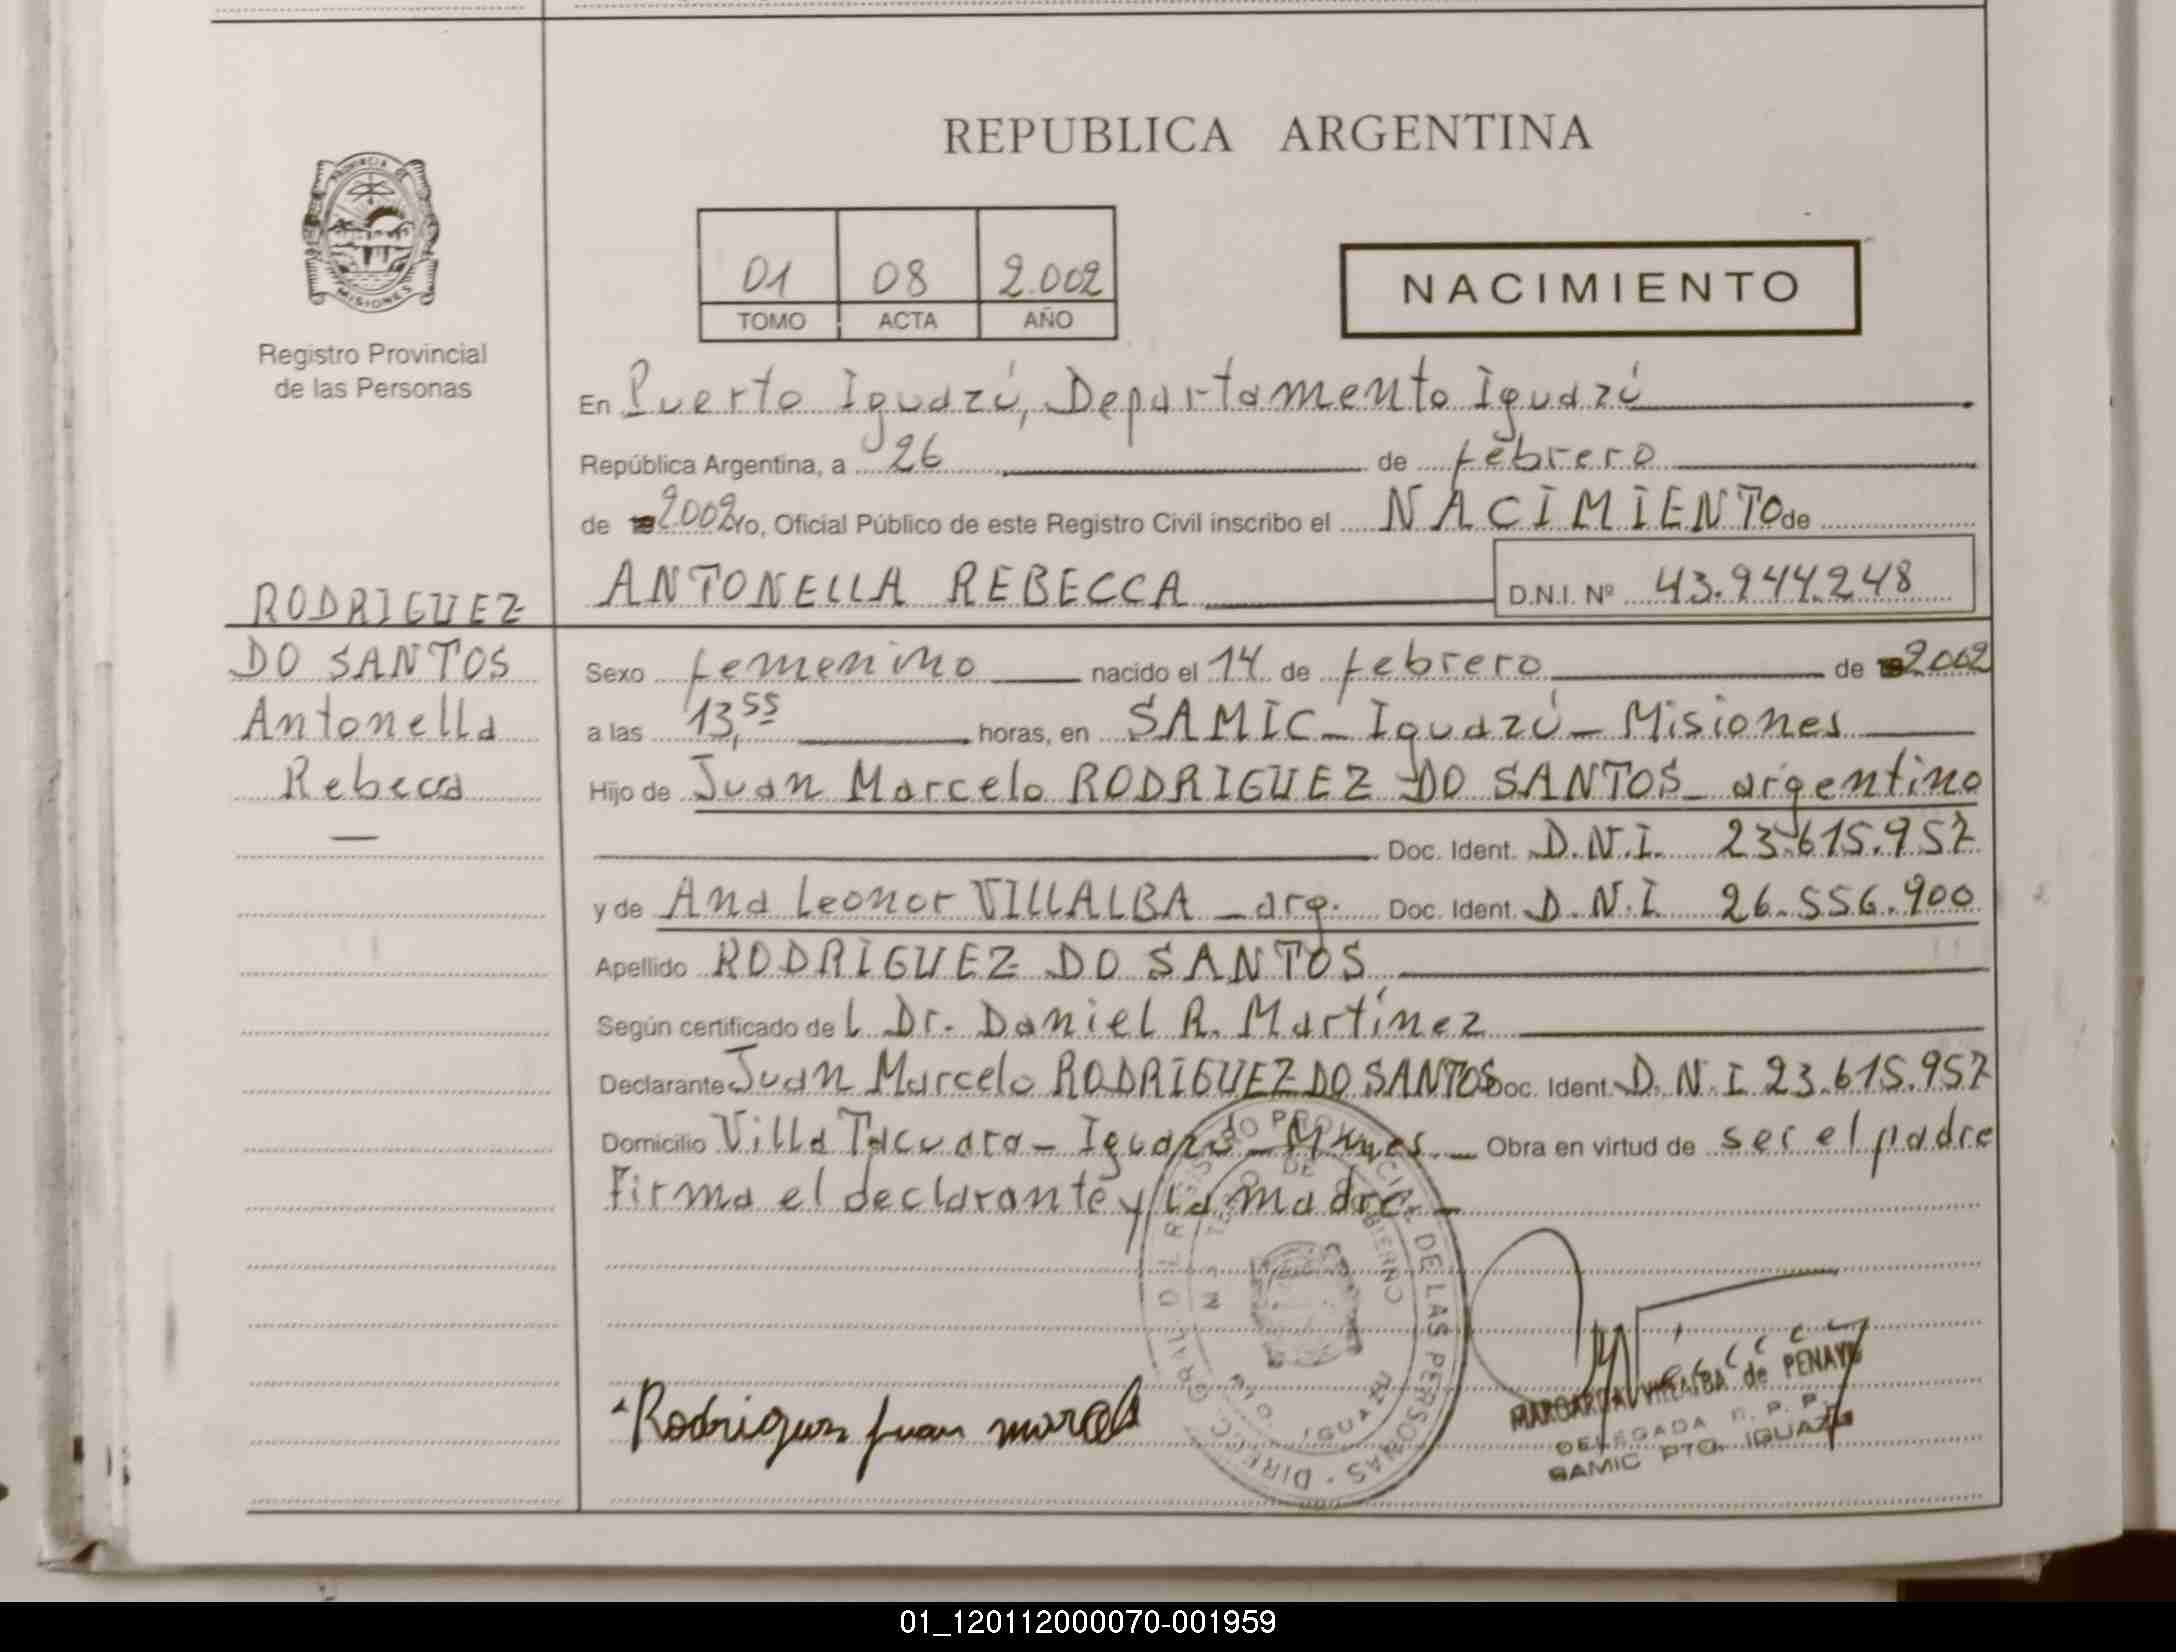 REPUBLICA ARGENTINA
PROVINCIA DE
MISIONES
Registro Provincial
de las Personas
01 08 2.002
TOMO ACTA AÑO
NACIMIENTO
En Puerto Iguazú, Departamento Iguazú
República Argentina, a 26 de febrero
de 2002 Yo, Oficial Público de este Registro Civil inscribo el NACIMIENTO de
ANTONELLA REBECCA D.N.I. Nº 43.944.248
RODRIGUEZ
DO SANTOS
Antonella
Rebecca
Sexo femenino nacido el 14 de febrero de 2002
a las 13,55 horas, en SAMIC - Iguazú - Misiones
Hijo de Juan Marcelo RODRIGUEZ DO SANTOS - argentino
Doc. Ident. D.N.I. 23.615.957
y de Ana Leonor VILLALBA - arg. Doc. Ident. D.N.I 26.556.900
Apellido RODRIGUEZ DO SANTOS
Según certificado del Dr. Daniel R. Martínez
Declarante Juan Marcelo RODRIGUEZ DO SANTOS Doc. Ident. D.N.I 23.615.957
Domicilio Villa Tacuara - Iguazú - Mnes. - Obra en virtud de ser el padre
Firma el declarante y la madre. -
DIRECC. GRAL. DEL REGISTRO PROVINCIAL DE LAS PERSONAS
MINISTERIO DE GOBIERNO
IGUAZU
Rodriguez Juan marcelo
MARGARITA VILLALBA de PENAYO
DELEGADA R. P. P.
SAMIC PTO. IGUAZU
01_120112000070-001959